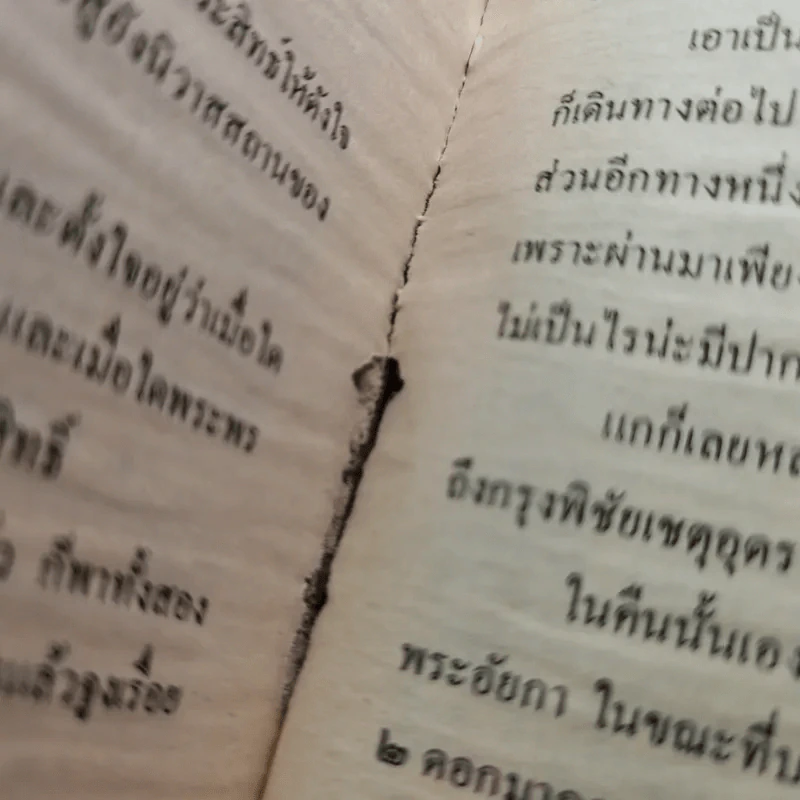 ระสิทธิ์ให้ตั้งใจ
สู่ยังนิวาสสถานของ
และตั้งใจอยู่ว่าเมื่อใด
และเมื่อใดพระพร
สิทธิ์
ก็พาทั้งสอง
แล้วจูงเรื่อย
เอาเป็น
ก็เดินทางต่อไป
ส่วนอีกทางหนึ่ง
เพราะผ่านมาเพียง
ไม่เป็นไรน่ะมีปาก
แกก็เลย
ถึงกรุงพิชัยเชตุอุดร
ในคืนนั้นเอง
พระอัยกา ในขณะที่
๒ ดอกมา